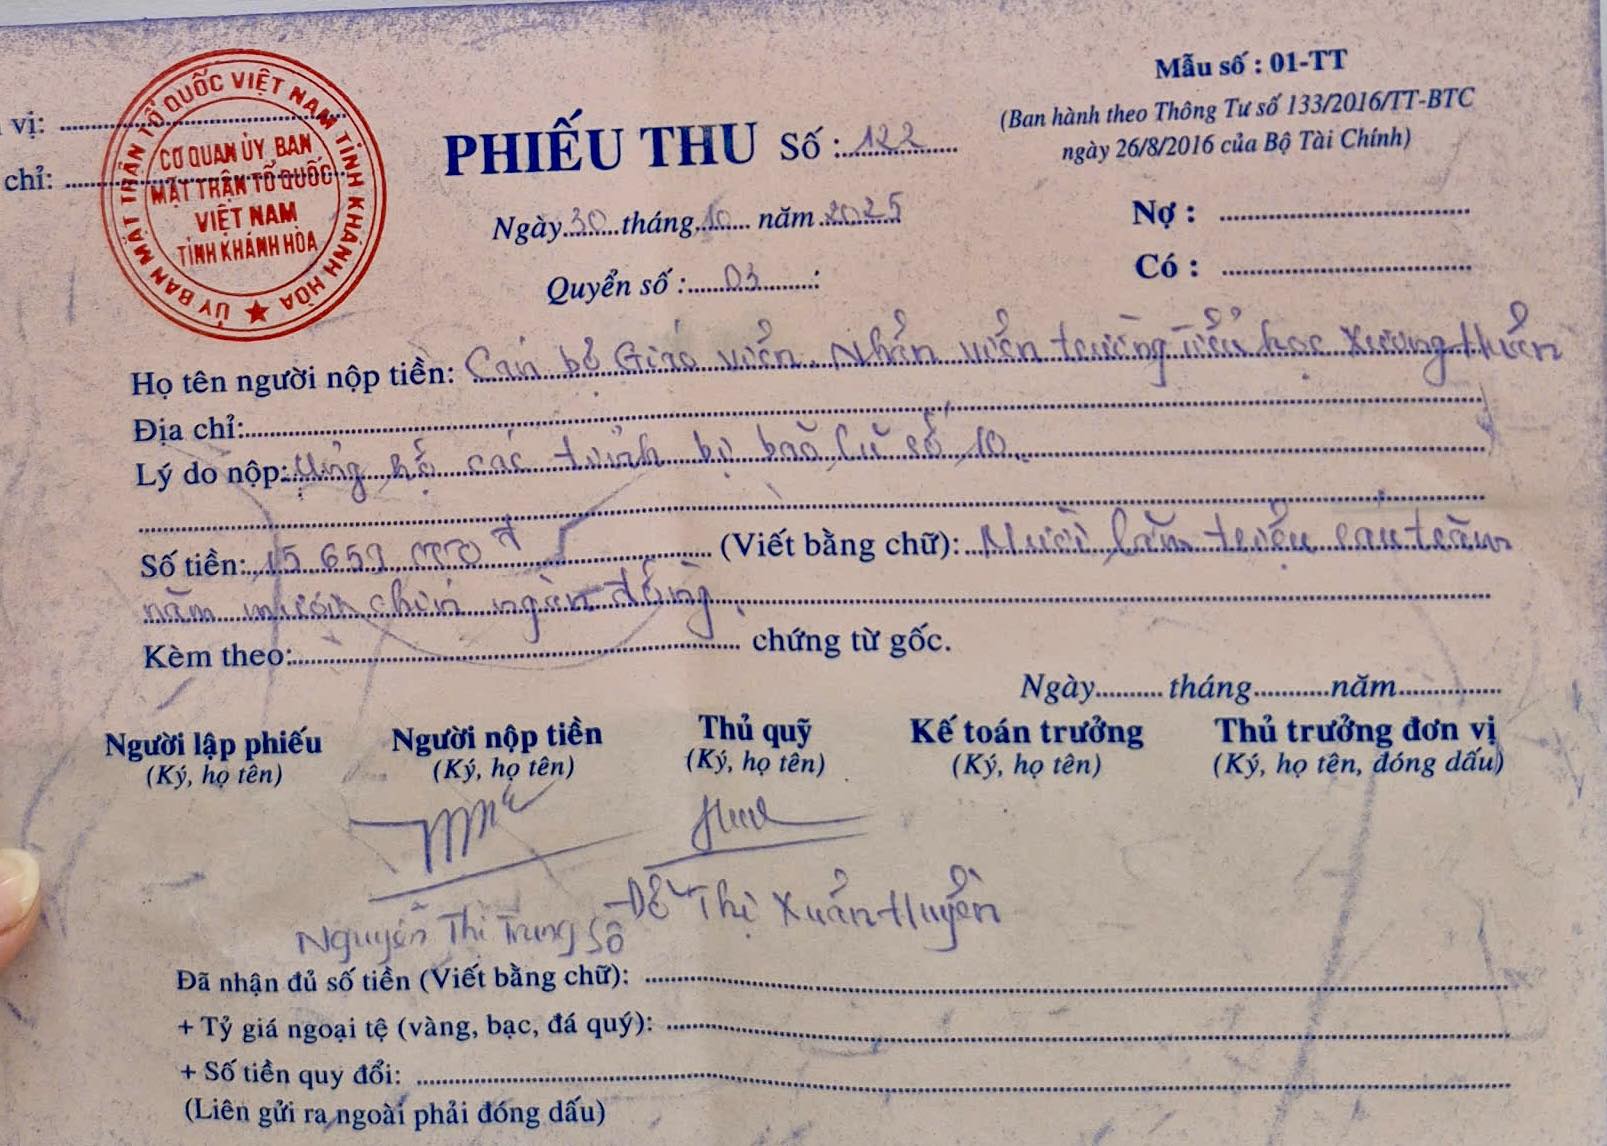 Mẫu số : 01-TT
(Ban hành theo Thông Tư số 133/2016/TT-BTC
ngày 26/8/2016 của Bộ Tài Chính)
ỦY BAN MẶT TRẬN TỔ QUỐC VIỆT NAM TỈNH KHÁNH HÒA
CƠ QUAN ỦY BAN
MẶT TRẬN TỔ QUỐC
VIỆT NAM
TỈNH KHÁNH HÒA
vị:
chỉ:
PHIẾU THU Số : 122
Ngày 30 tháng 10 năm 2025
Quyển số : 03
Nợ :
Có :
Họ tên người nộp tiền: Cán bộ Giáo viên, Nhân viên trường Tiểu học Xương Huân
Địa chỉ:
Lý do nộp: Ủng hộ các tỉnh bị bão lũ số 10.
Số tiền: 15 659 000 đ (Viết bằng chữ): Mười lăm triệu sáu trăm
năm mươi chín ngàn đồng.
Kèm theo: chứng từ gốc.
Ngày tháng năm
Người lập phiếu Người nộp tiền Thủ quỹ Kế toán trưởng Thủ trưởng đơn vị
(Ký, họ tên) (Ký, họ tên) (Ký, họ tên) (Ký, họ tên) (Ký, họ tên, đóng dấu)
Nguyễn Thị Trung Số Đỗ Thị Xuân Huyền
Đã nhận đủ số tiền (Viết bằng chữ):
+ Tỷ giá ngoại tệ (vàng, bạc, đá quý):
+ Số tiền quy đổi:
(Liên gửi ra ngoài phải đóng dấu)